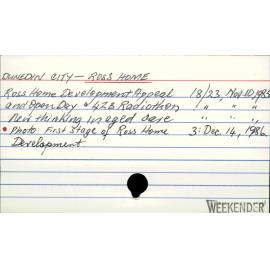 DUNEDIN CITY — ROSS HOME
Ross Home Development Appeal 18/23, Nov. 10, 1985
and Open Day & 4ZB Radiothon " " "
New thinking in aged care " " "
• Photo: First Stage of Ross Home 3: Dec. 14, 1986
Development
WEEKENDER